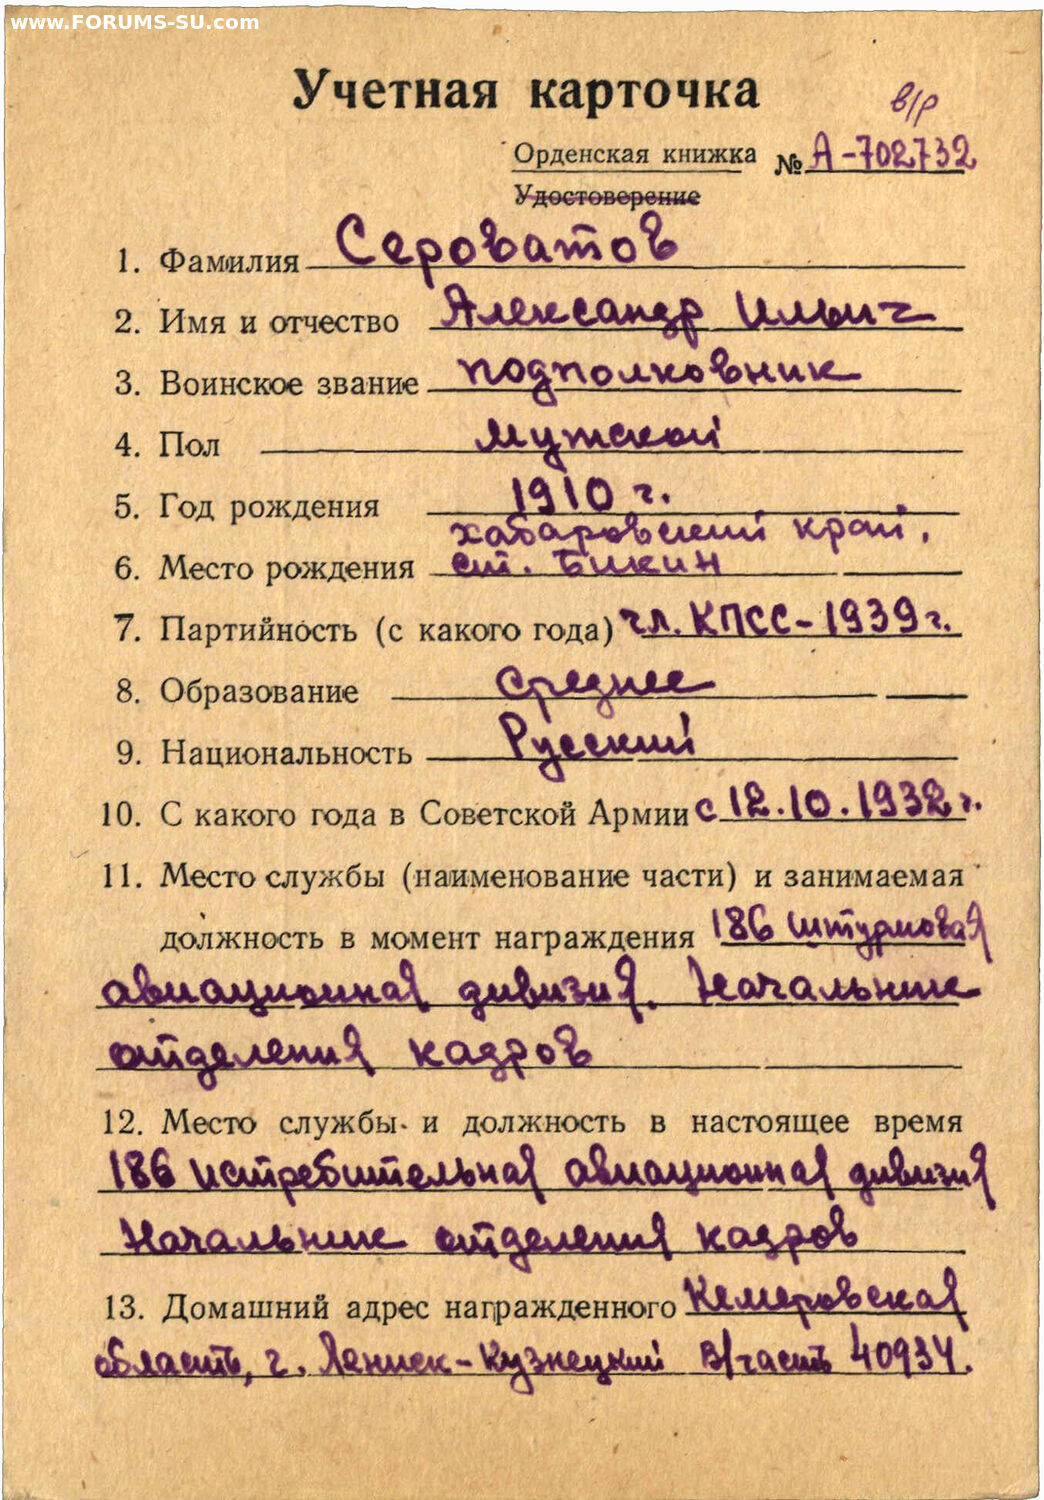 www.FORUMS-SU.com
Учетная карточка
в/р
Орденская книжка № А-702732
Удостоверение
1. Фамилия Сероватов
2. Имя и отчество Александр Ильич
3. Воинское звание подполковник
4. Пол Мужской
5. Год рождения 1910 г.
хабаровский край,
6. Место рождения ст. Бикин
7. Партийность (с какого года) чл. КПСС-1939 г.
8. Образование среднее
9. Национальность Русский
10. С какого года в Советской Армии с 12.10.1932 г.
11. Место службы (наименование части) и занимаемая
должность в момент награждения 186 штурмовая
авиационная дивизия. Начальник
отделения кадров
12. Место службы и должность в настоящее время
186 истребительная авиационная дивизия
Начальник отделения кадров
13. Домашний адрес награжденного Кемеровская
область, г. Ленинск-Кузнецкий в/часть 40934.